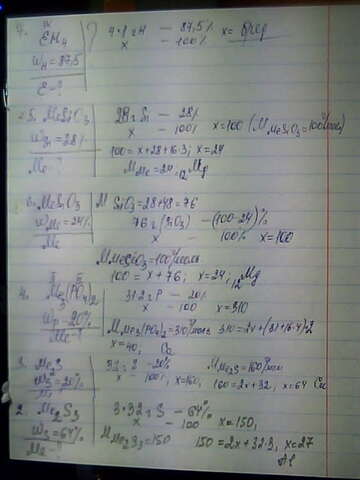 7. EH4
IV
W H = 87,5
E - ?
4·1 г H — 87,5%
x — 100%
x =
5. MeSiO3
W Si = 28%
Me - ?
28 г Si — 28%
x — 100%
x = 100 (M MeSiO3 = 100 г/моль)
100 = x + 28 + 16·3; x = 24
M Me = 24. 12 Mg
6. MeSiO3
W Me = 24%
Me
M SiO3 = 28 + 48 = 76
76 г (SiO3) — (100-24)%
x — 100%
x = 100
M MeSiO3 = 100 г/моль
100 = x + 76; x = 24; 12 Mg
4. Me3(PO4)2
W P - 20%
Me - ?
31·2 г P — 20%
x — 100
x = 310
M Me3(PO4)2 = 310 г/моль
x = 40, Ca
3. Me2S
W S = 20%
Me - ?
32 г S - 20%
x — 100%, x = 160,
M Me2S = 160 г/моль
160 = 2x + 32, x = 64 Cu
2. Me2S3
W S = 64%
Me - ?
3·32 г S — 64%
x — 100
x = 150,
M Me2S3 = 150
150 = 2x + 32·3, x = 27
Al